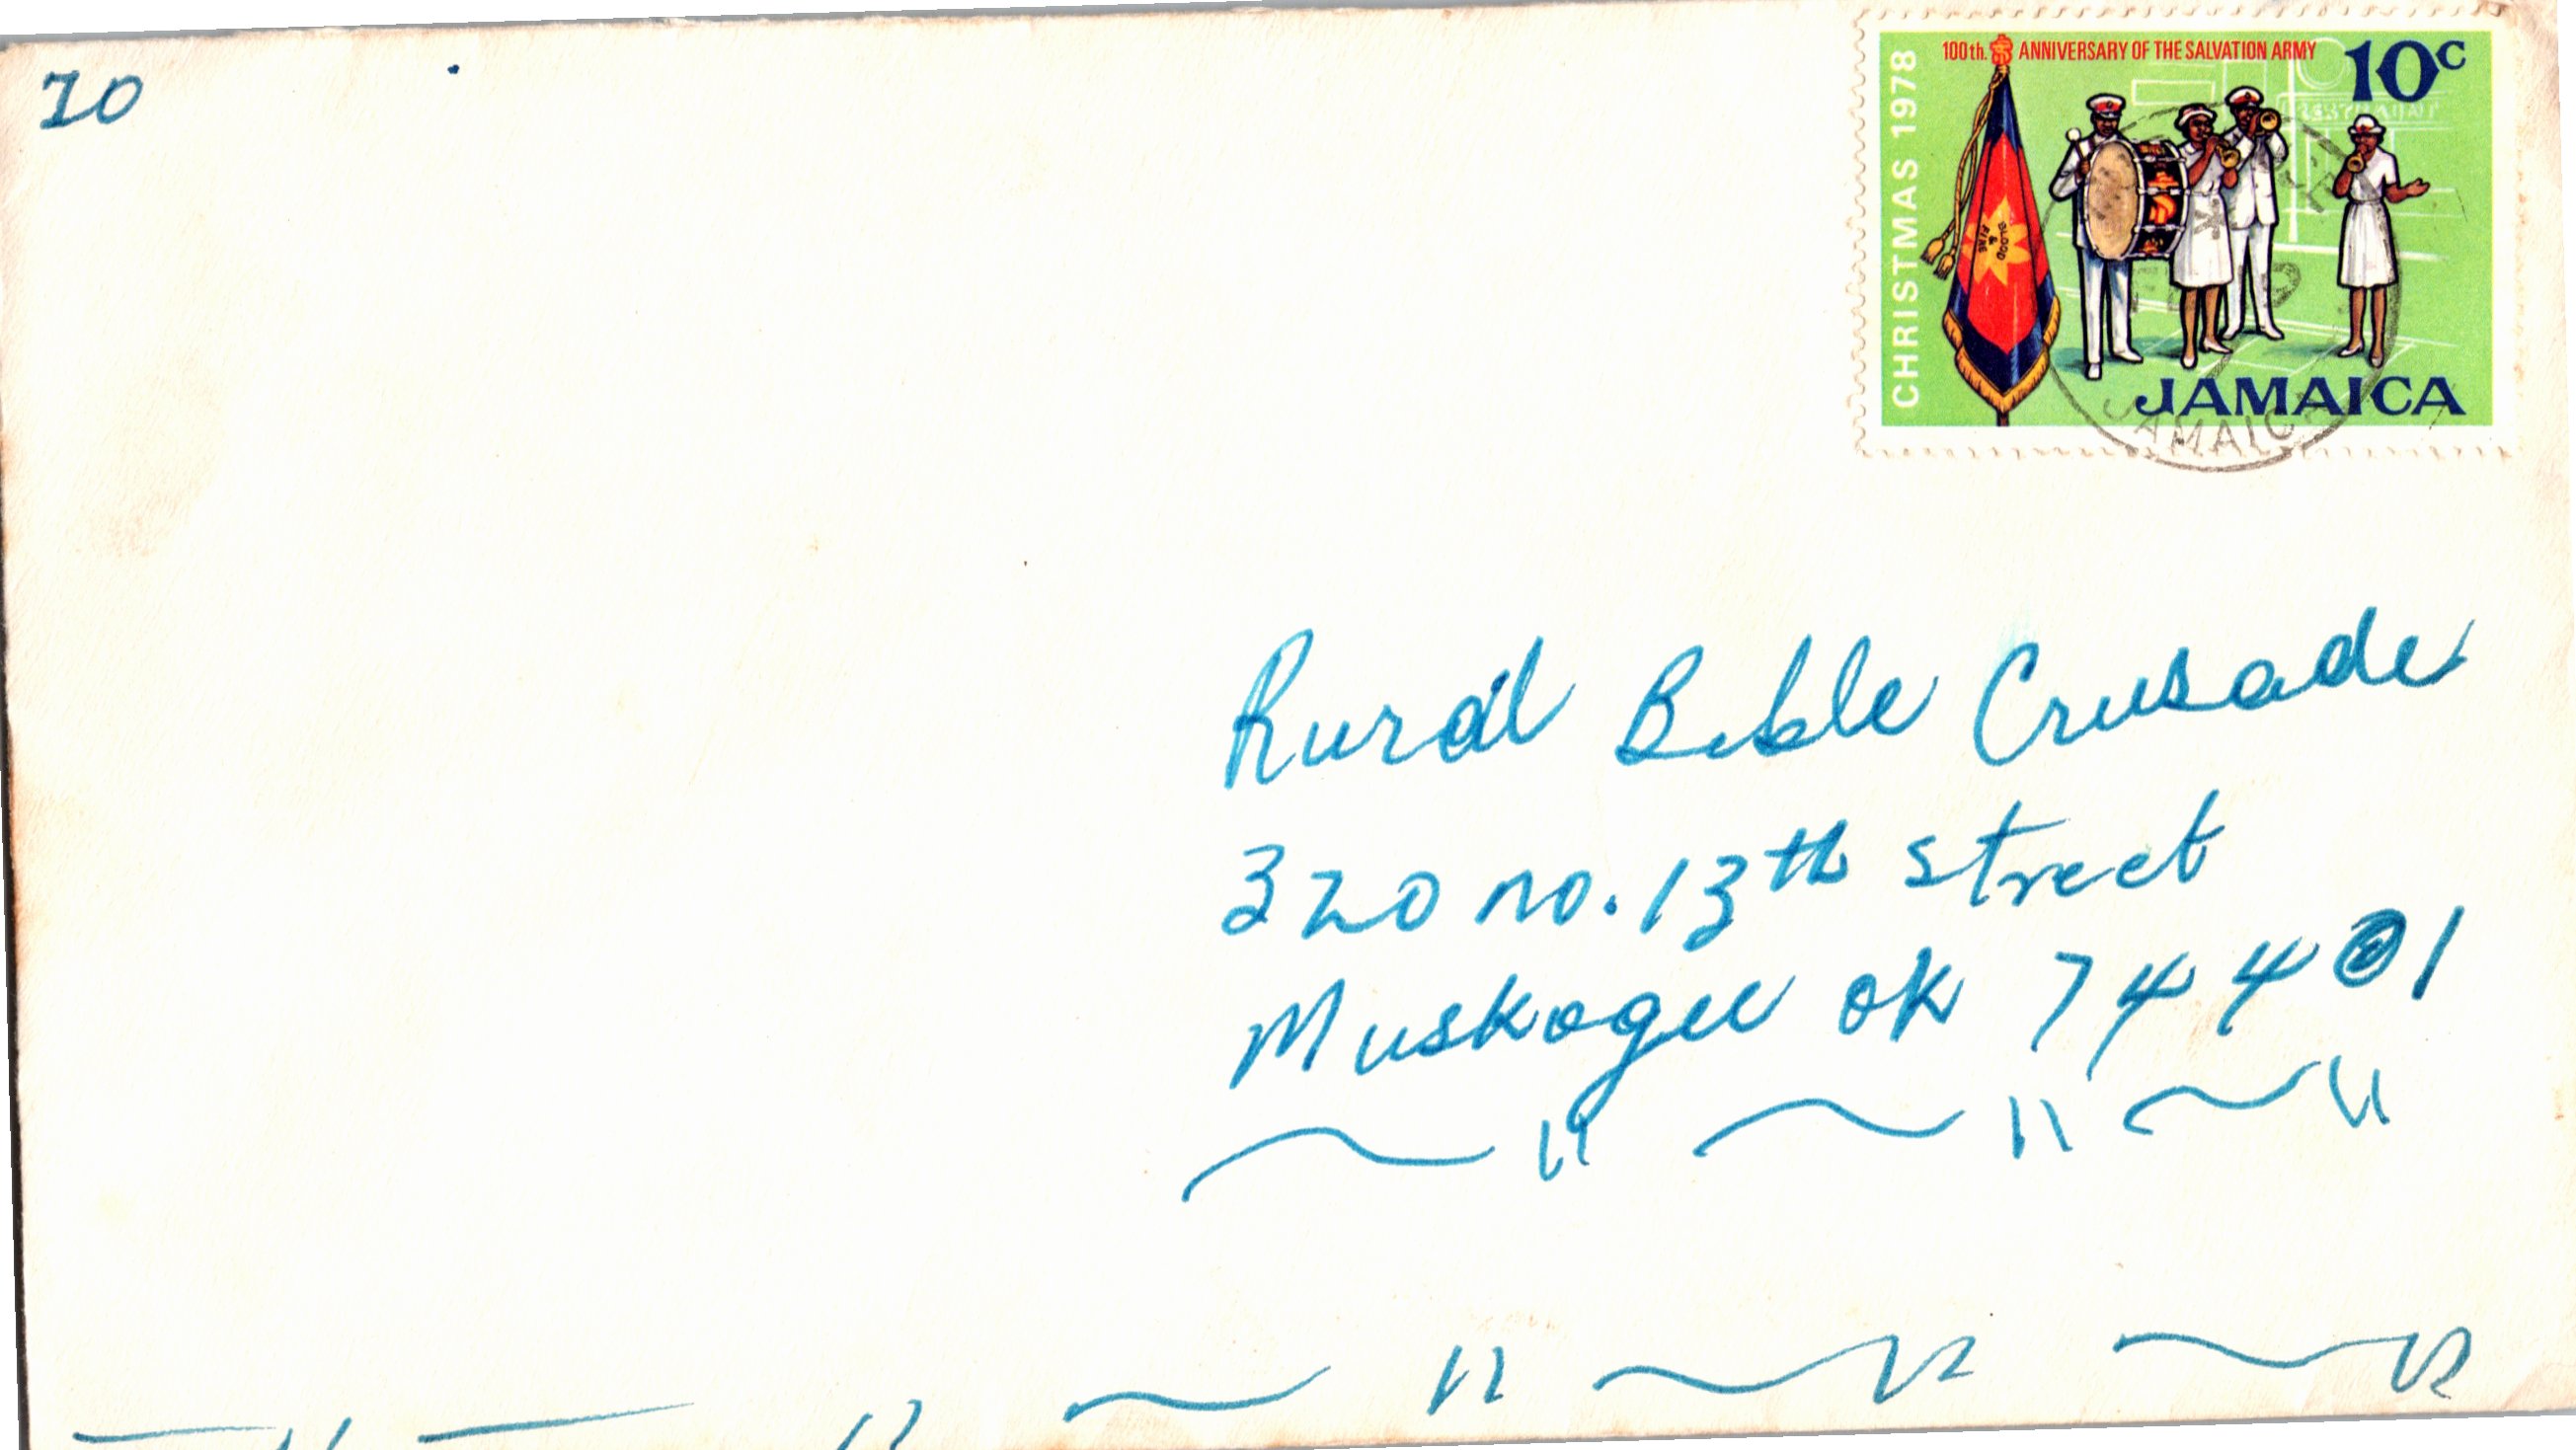 10
100th. ANNIVERSARY OF THE SALVATION ARMY
10c
CHRISTMAS 1978
BLOOD
&
FIRE
RESTAURANT
JAMAICA
JAMAICA
Rural Bible Crusade
320 no. 13th street
Muskogee ok 74401